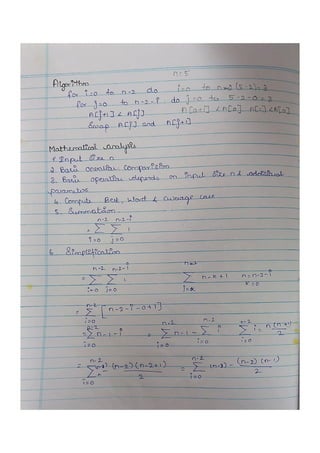 n=5
Algorithm
for i=0 to n-2 do i=0 to (5-2)=3
for j=0 to n-2-i do j=0 to 5-2-0=3
A[j+1] < A[j] A[0+1] < A[0] A[1] < A[0]
Swap A[j] and A[j+1]
Mathematical Analysis
1. Input Size n
2. Basic operation Comparision
3. Basic operation depends on input size n & additional
parameter
4. Compute Best, Worst & average case
5. Summation
n-2 n-2-i
= Σ Σ 1
i=0 j=0
6. Simplification
n-2 n-2-i
= Σ Σ 1 Σ n-k+1 n=n-2-i
i=0 j=0 i=k k=0
n-2
= Σ [n-2-i-0+1]
i=0
n-2 n-2 n-2 n-2
= Σ n-1-i = Σ n-1 - Σ i Σ i =
i=0 i=0 i=0 i=0 2
n-2 n-2
= Σ (n-2)(n-2+1) = Σ - (n-2)(n-1)
i=0 2 i=0 2